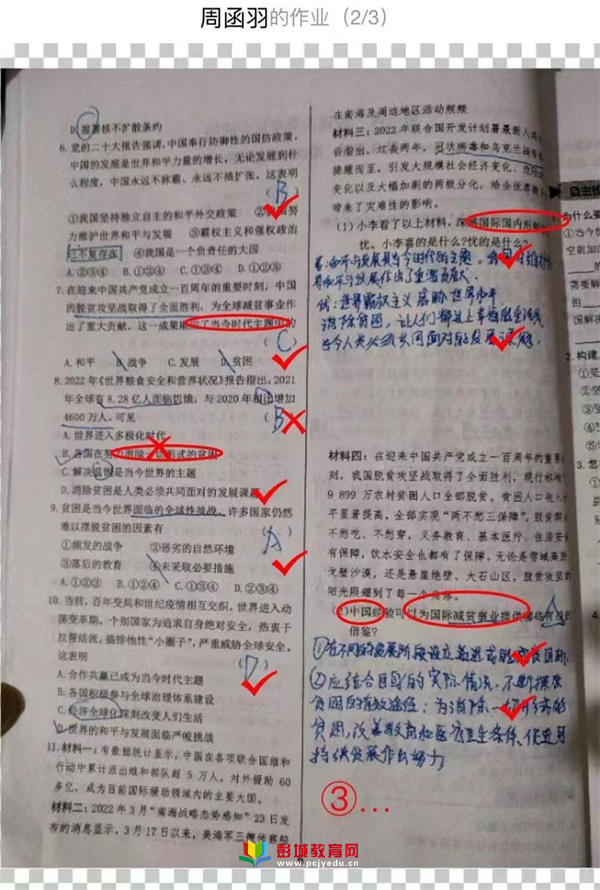 周函羽的作业（2/3）
D.签署核不扩散条约
6.党的二十大报告强调,中国奉行防御性的国防政策,
中国的发展是世界和平力量的增长,无论发展到什
么程度,中国永远不称霸、永远不搞扩张。这表明
(B)
①我国坚持独立自主的和平外交政策
力维护世界和平与发展 ③霸权主义和强权政治
已不复存在 ④我国是一个负责任的大国
A.②③④ B.①②④ C.①③④ D.①②③
7.在迎来中国共产党成立一百周年的重要时刻,中国
的脱贫攻坚战取得了全面胜利,为全球减贫事业作
出了重大贡献。这一成果
当今时代主题
(C)
A.和平 B.战争 C.发展 D.贫困
8.2022年《世界粮食安全和营养状况》报告指出,2021
年全球有8.28亿人面临饥饿,与2020年相比增加
4600万人。可见
B
A.世界进入多极化时代
B.各国在努力消除一切形式的贫困
C.解决温饱是当今世界的主题
D.消除贫困是人类必须共同面对的发展课题
9.贫困是当今世界面临的全球性挑战。许多国家仍然
难以摆脱贫困的因素有
(A)
①频发的战争 ②恶劣的自然环境
③落后的教育 ④未采取必要措施
A.①②③ B.①②④ C.①③④ D.②③④
10.当前,百年变局和世纪疫情相互交织,世界进入动
荡变革期。个别国家为追求自身绝对安全,热衷于
拉帮结派,搞排他性“小圈子”,严重威胁全球安全。
这表明
(D)
A.合作共赢已成为当今时代主题
B.各国积极参与全球治理体系建设
C.经济全球化深刻改变人们生活
D.世界的和平与发展面临严峻挑战
11.材料一:有数据统计显示,中国在各项联合国维和
行动中累计派出维和部队超5万人,对外援助60
多亿,成为目前国际援助领域内的主要大国。
材料二:2022年3月“南海战略态势感知”23日发
布的消息显示,3月17日以来,美海军三艘侦察船
在南海及周边地区活动频频
材料三:2022年联合国开发计划署最新人
告指出,过去两年,冠状病毒和乌克兰战争
接踵而至,引发大规模社会经济变化、危险的
变化以及大幅加剧的两极分化,给全世界
带来了灾难性的影响。
(1)小李看了以上材料,深感国际国内形势
忧。小李喜的是什么?忧的是什么?
喜:和平与发展是当今时代的主题。
界和平与发展作出了重要贡献。
忧:世界霸权主义威胁世界和平
消除贫困,让人们都过上幸福
当今人类必须共同面对的发展课题。
材料四:在迎来中国共产党成立一百周年的重要
刻,我国脱贫攻坚战取得了全面胜利,现行标准
9 899万农村贫困人口全部脱贫。贫困人口收入
平显著提高,全部实现“两不愁三保障”,脱贫群众
不愁吃、不愁穿,义务教育、基本医疗、住房安
有保障,饮水安全也都有了保障。无论是雪域高原、
戈壁沙漠,还是悬崖绝壁、大石山区,脱贫攻坚的
阳光照耀到了每一个角落。
(2)中国经验可以为国际减贫事业提供哪些有益的
借鉴?
①在不同的发展阶段设立
②应结合国家的实际情况,不断探索
贫困的有效途径;为消除一切形式的
贫困,改善教育和医疗卫生条件,促进可
持续发展作出努力
③…
自主
为什么要
①当今
空前加
2.构建
①
②
③
④
3.怎
彭城教育网
www.pcjyedu.cn